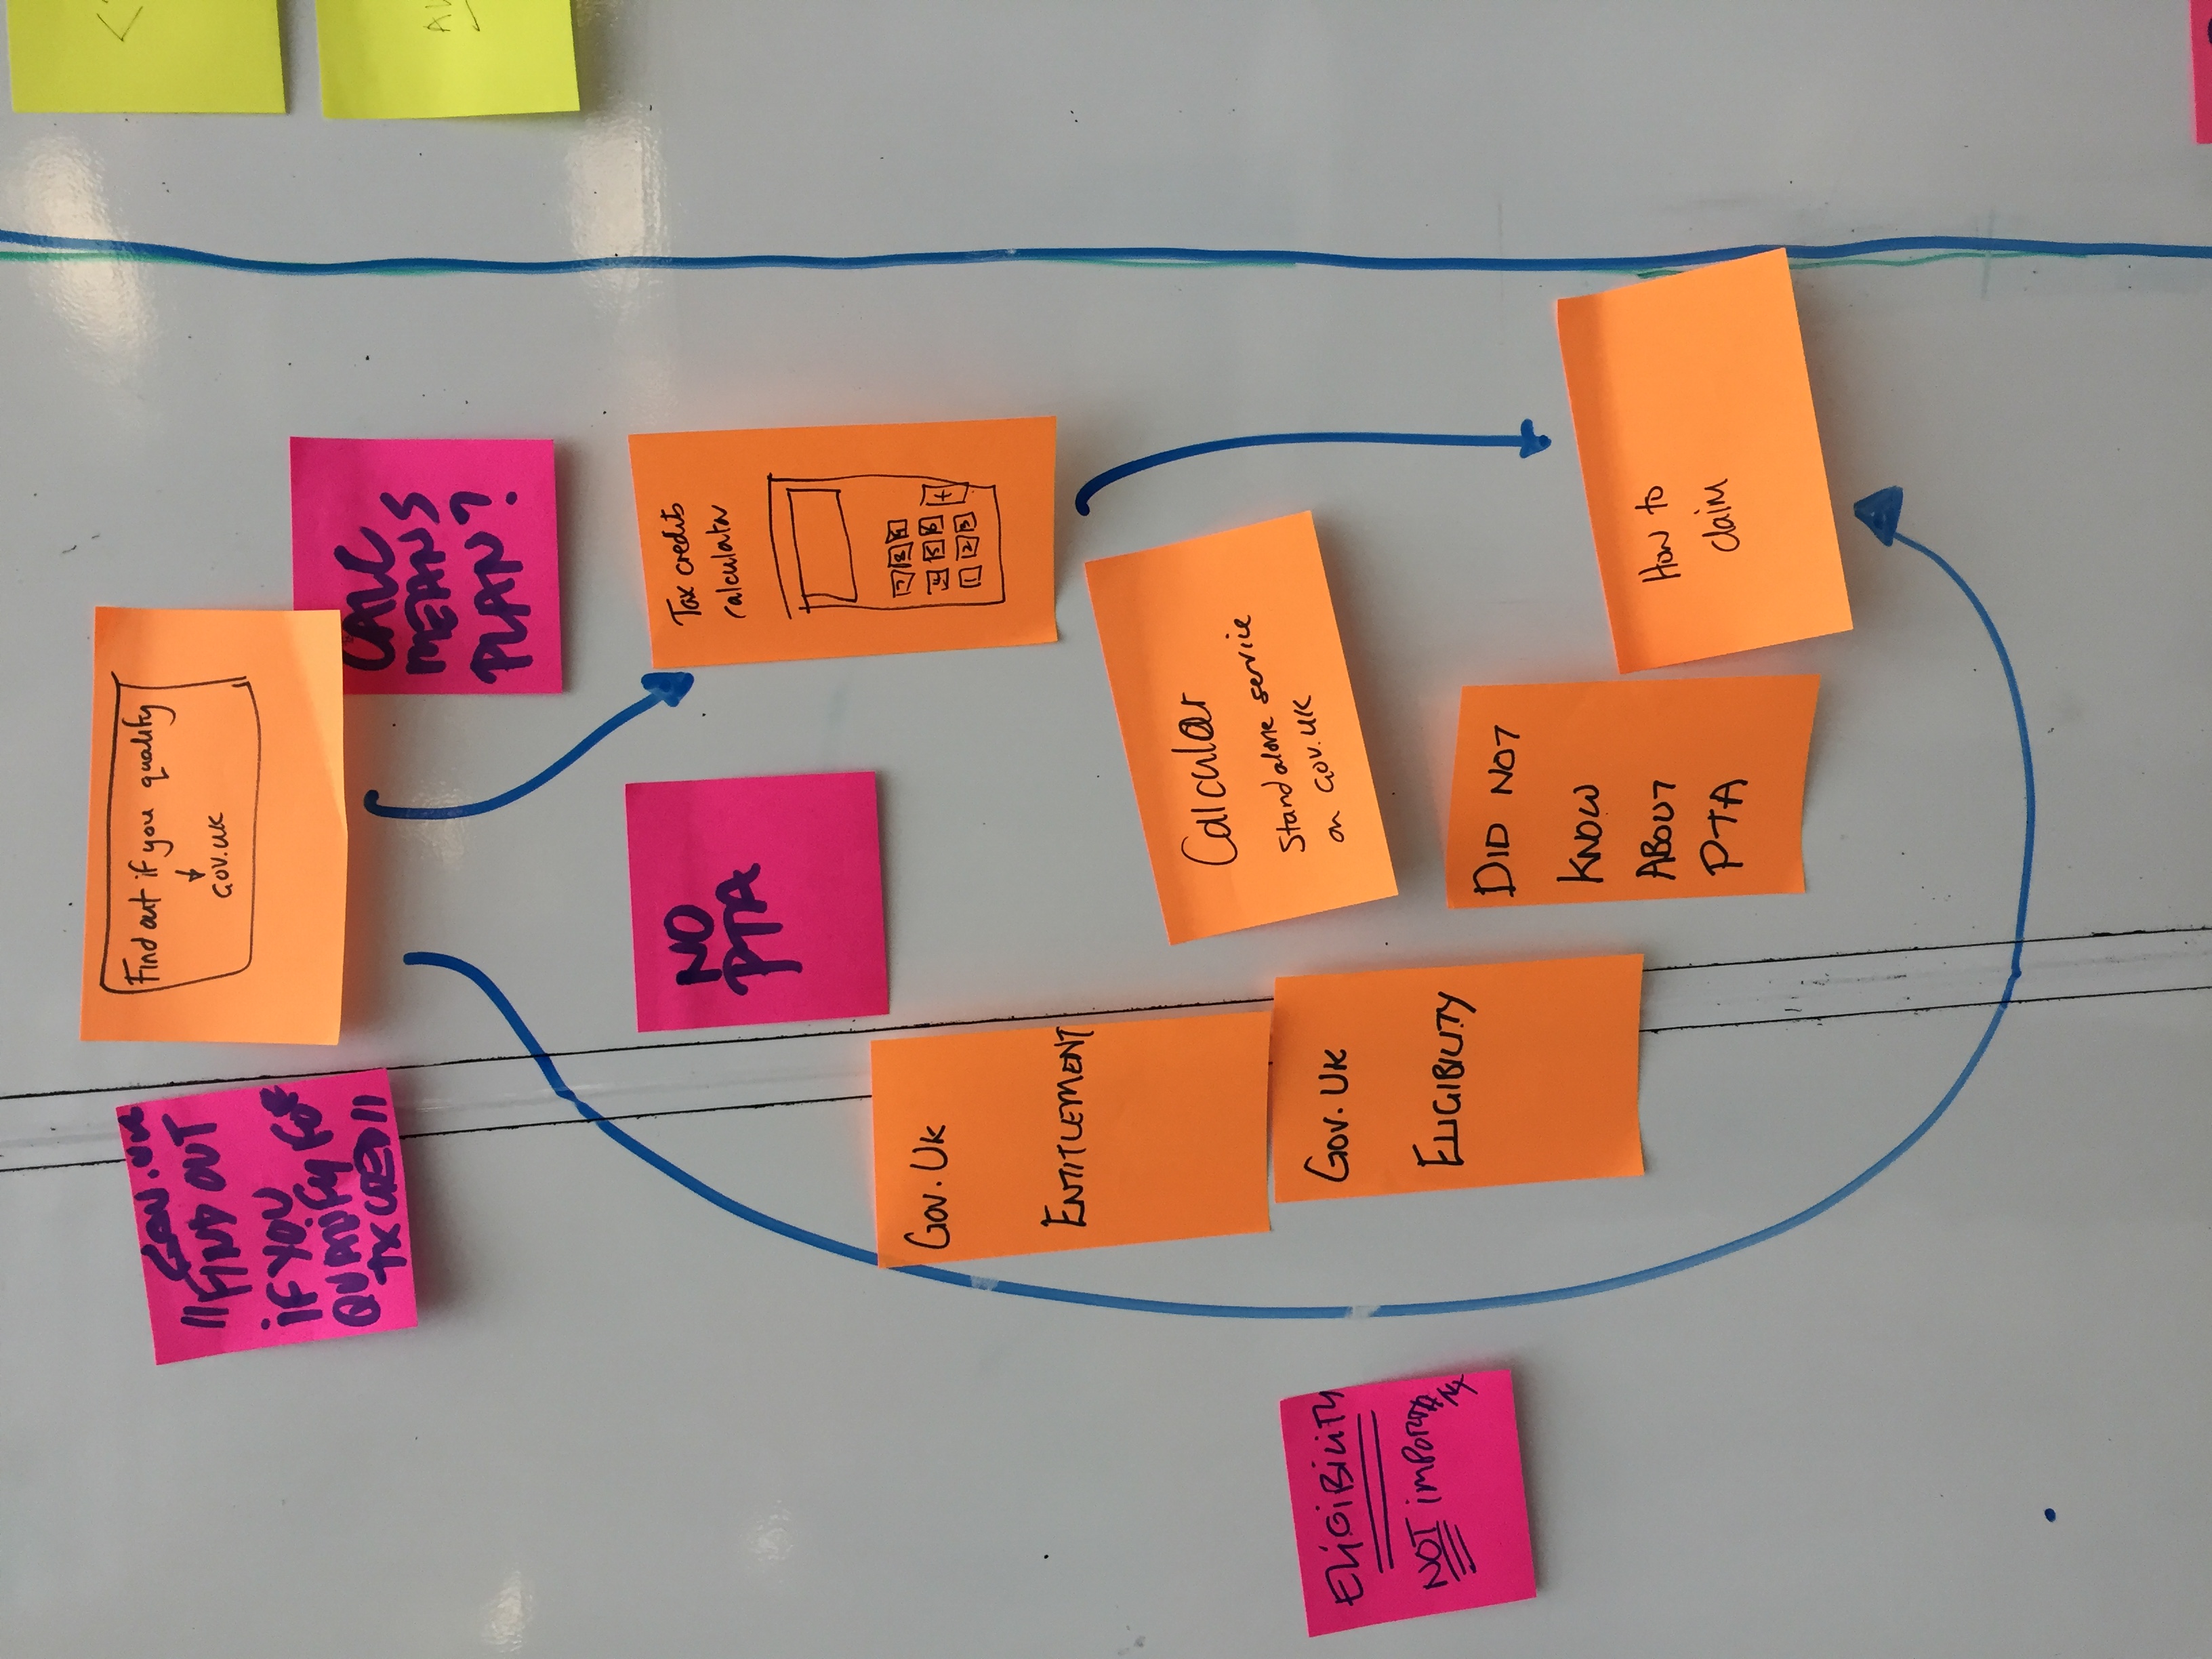 GOV.UK
"FIND OUT
iF YOU
QUALiFY FOR
TX CRED"
Find out if you qualify
GOV.UK
CALC
MEANS
PLAN?
NO
PTA
Tax credits
calculator
7 8 9
4 5 6 +
1 2 3
GOV. UK
ENTITLEMENT
Calculator
Standalone service
on GOV.UK
GOV. UK
ELIGIBILITY
ELiGiBiLiTY
NOT iMPORTANT
DID NOT
KNOW
ABOUT
PTA
How to
claim